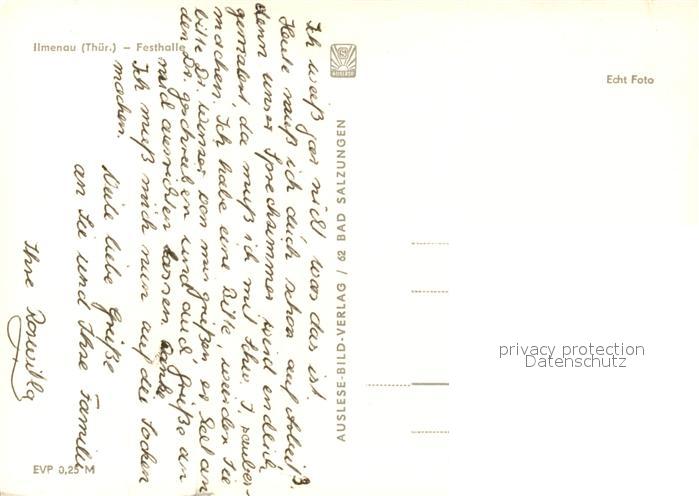 Ilmenau (Thür.) – Festhalle
AUSLESE
Echt Foto
Ich weiß gar nicht was das ist
Heute muß ich doch schon auf Arbeit
denn unser Sprechzimmer wird endlich
gemalert, da muß ich mit Schw. I. sauber-
machen. Ich habe eine Bitte, würden Sie
bitte Dr. von mir grüßen, er hat an
den Dr. geschrieben und auch Grüße an
mich ausrichten lassen. Danke
Ich muß mich nun auf die Socken
machen.
Viele liebe Grüße
an Sie und Ihre Familie
Ihre Roswitha
AUSLESE-BILD-VERLAG / 62 BAD SALZUNGEN
EVP 0,25 M
privacy protection
Datenschutz